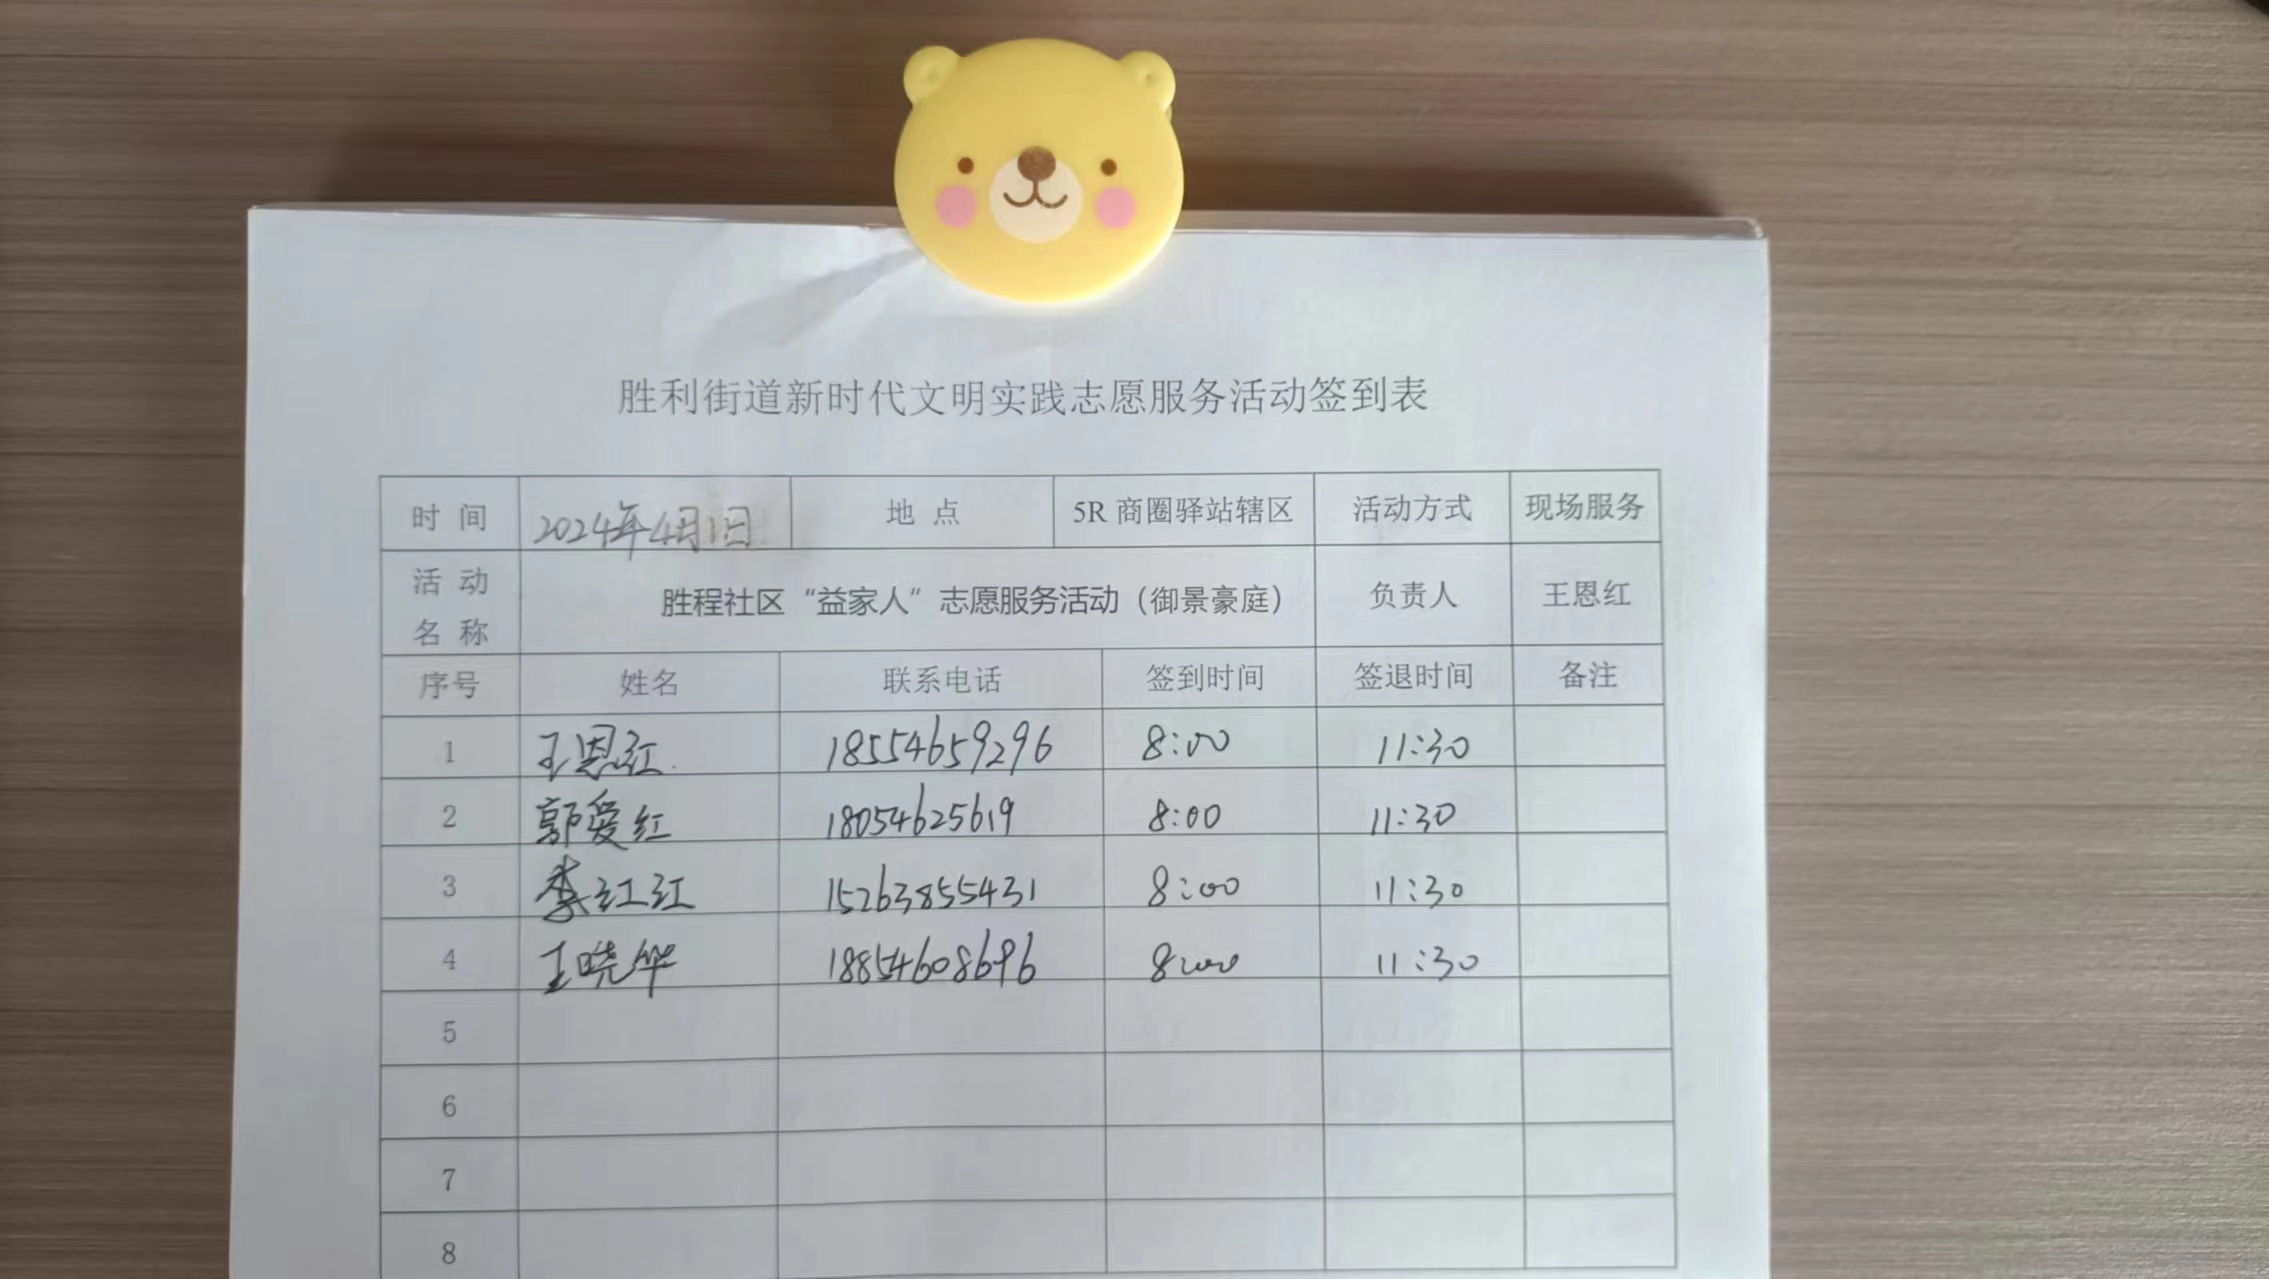 胜利街道新时代文明实践志愿服务活动签到表
时 间 2024年4月1日 地 点 5R 商圈驿站辖区 活动方式 现场服务
活 动 名 称 胜程社区“益家人”志愿服务活动（御景豪庭） 负责人 王恩红
序号 姓名 联系电话 签到时间 签退时间 备注
1 王恩红 18554659296 8:00 11:30
2 郭爱红 18054625619 8:00 11:30
3 李红红 15263855431 8:00 11:30
4 王晓华 18854608696 8:00 11:30
5
6
7
8